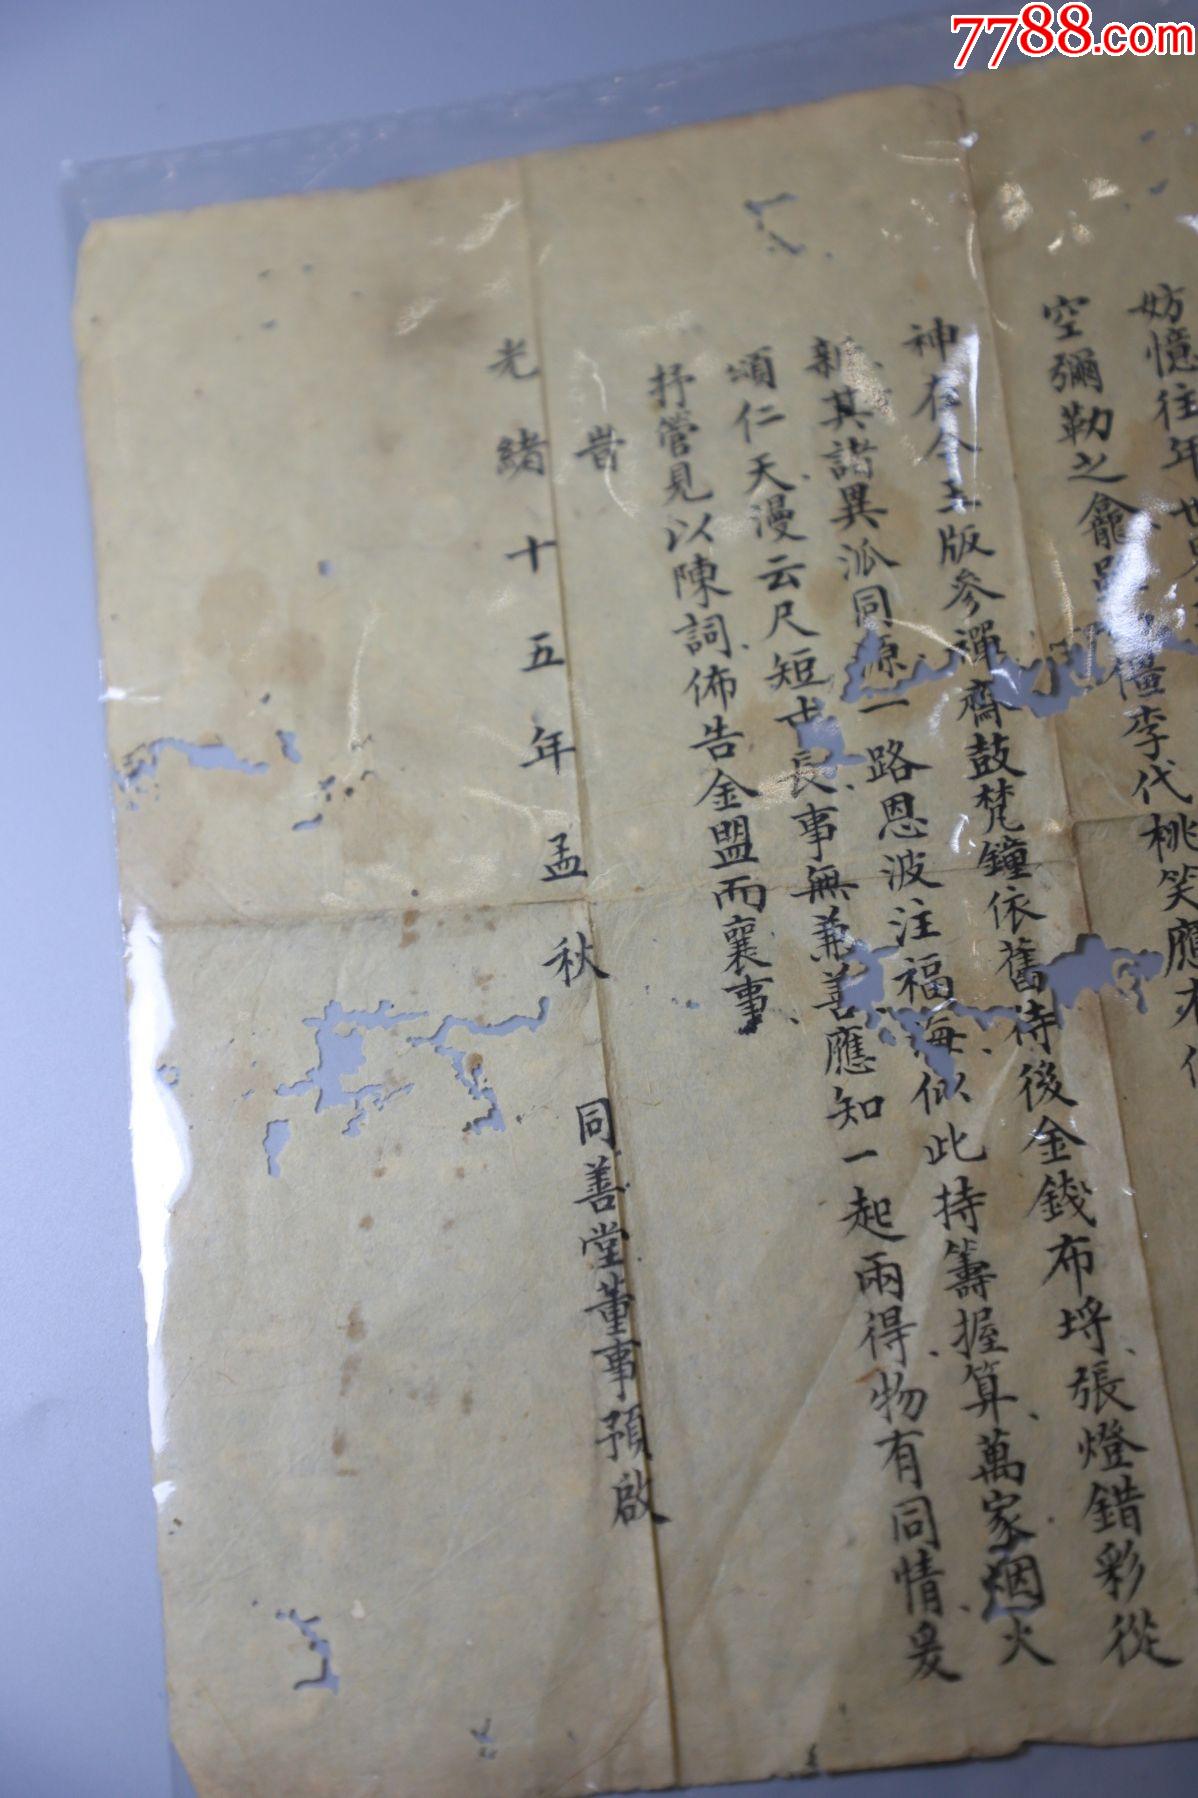 7788.com
妨憶往年世
空彌勒之龕 僵李代桃笑應
神在今玉版參禪齋鼓梵鐘依舊待後金錢布埓張燈錯彩從
新其諸異派同源一路恩波注福海似此持籌握算萬家烟火
頌仁天漫云尺短寸長事無兼善應知一起兩得物有同情爰
抒管見以陳詞佈告金盟而襄事
旹
光緒十五年孟秋
同善堂董事預啟